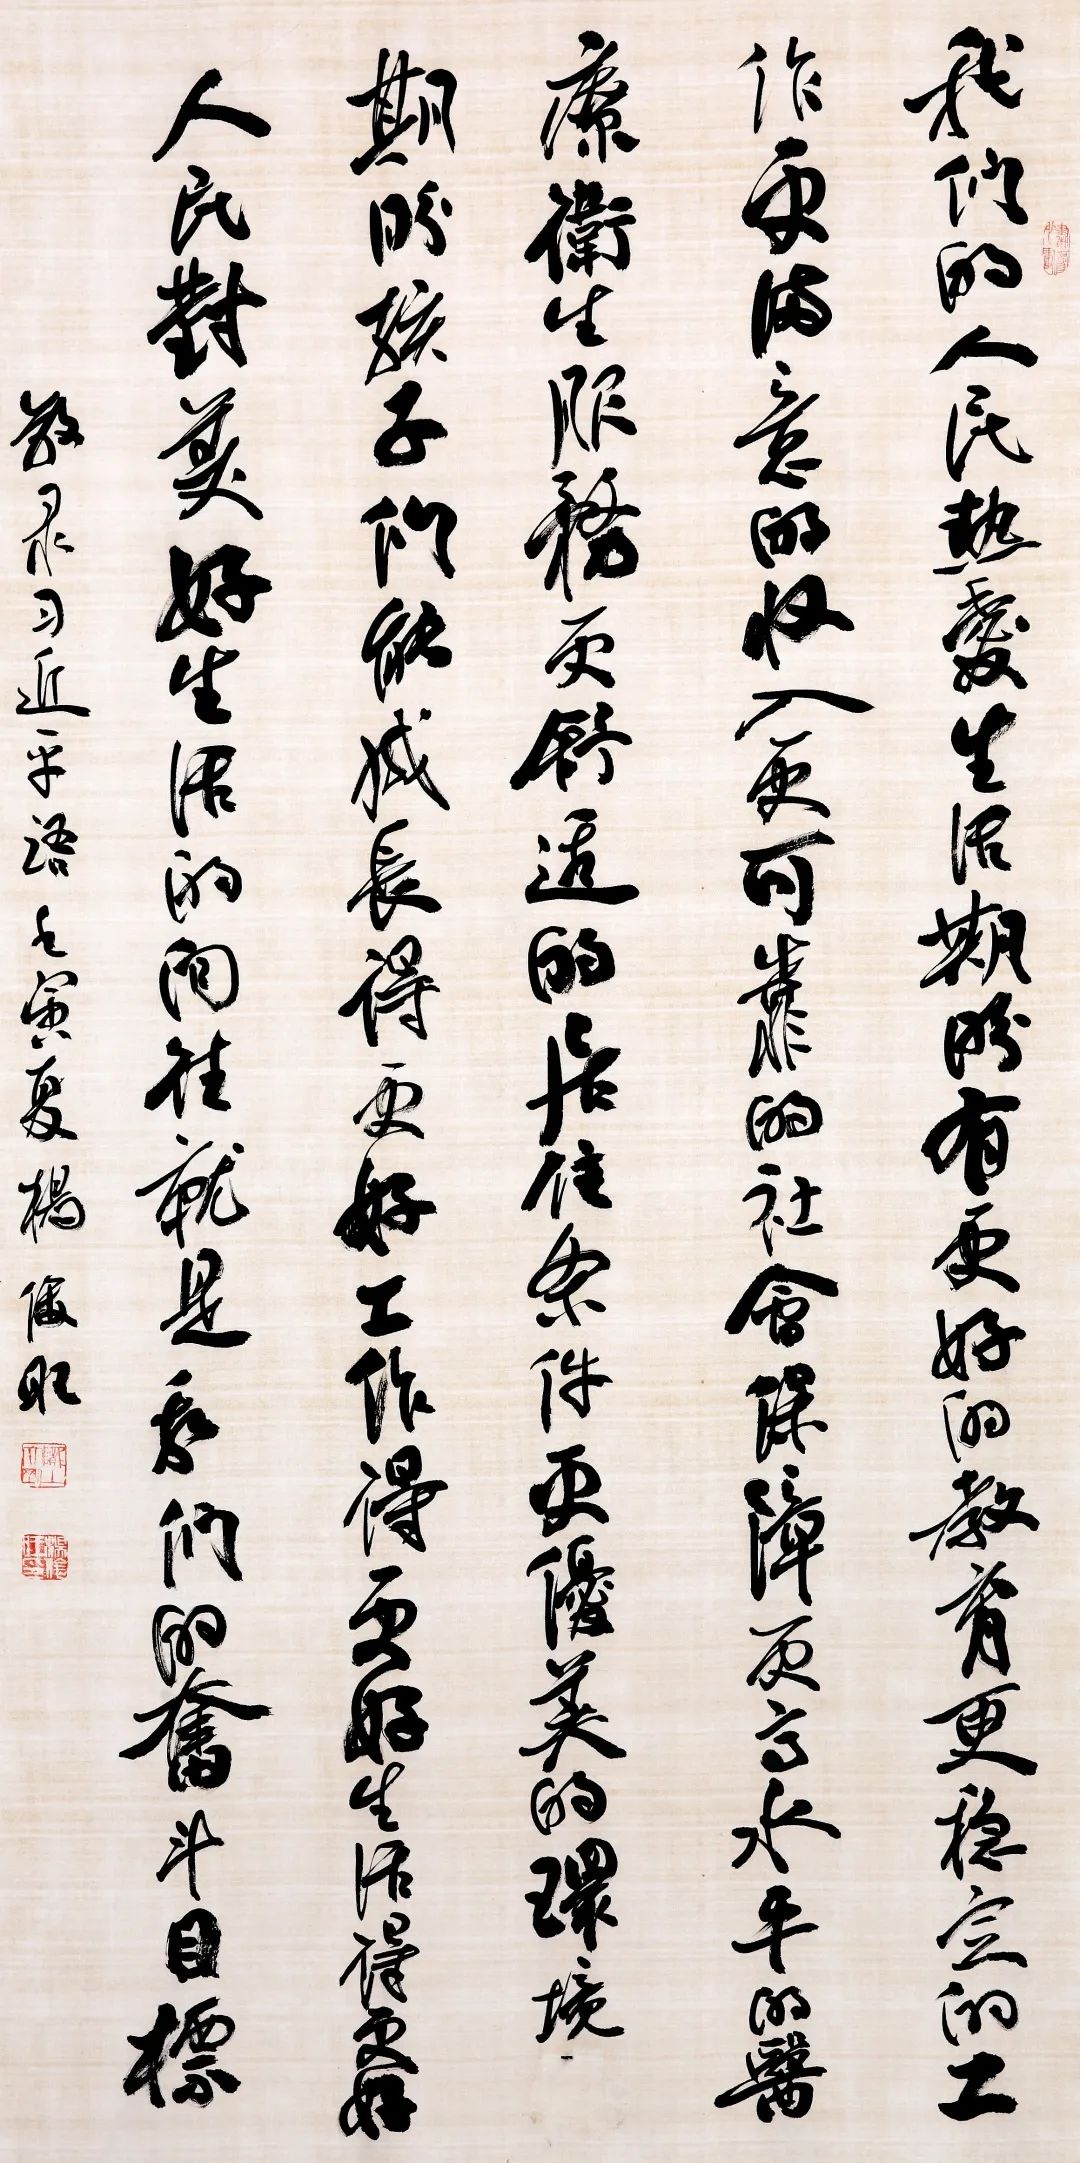 我們的人民熱愛生活期盼有更好的教育更稳定的工
作更满意的收入更可靠的社會保障更高水平的醫
療衛生服務更舒适的居住条件更優美的環境
期盼孩子們能成長得更好工作得更好生活得更好
人民對美好生活的向往就是我們的奮斗目標
敬录习近平語壬寅夏楊俊